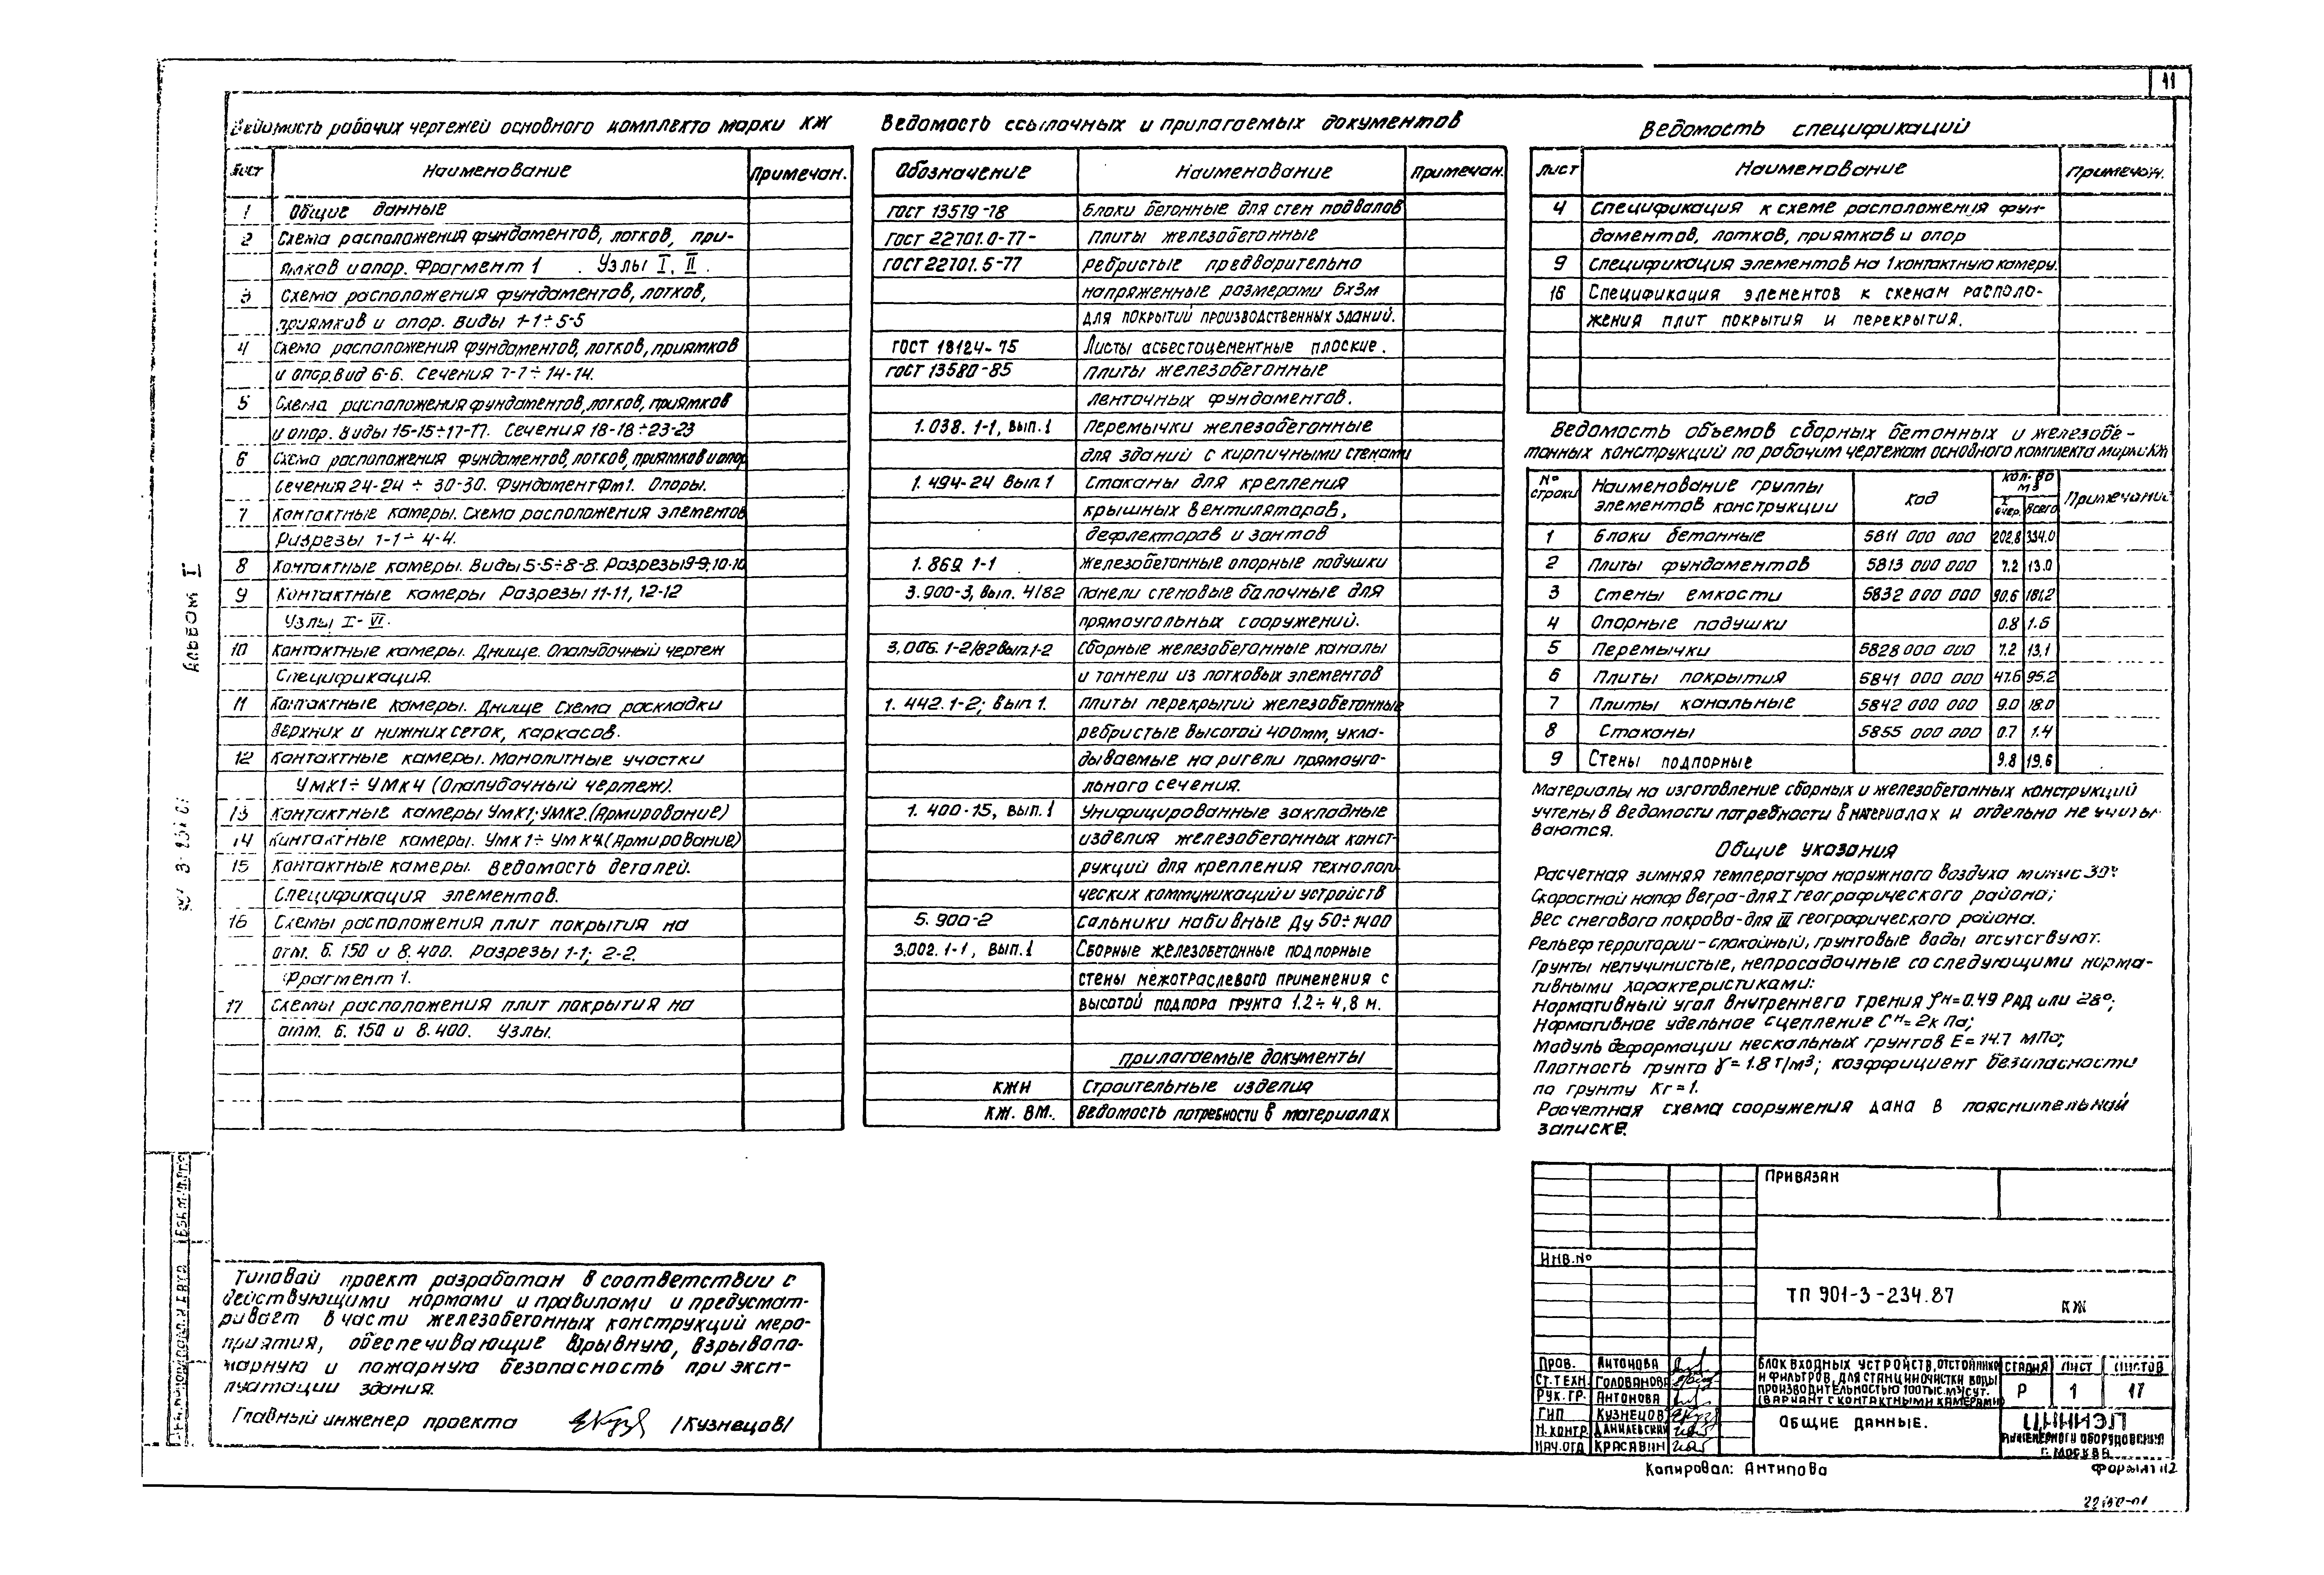 11
Ведомость рабочих чертежей основного комплекта марки КЖ
Лист Наименование Примечан.
1 Общие данные
2 Схема расположения фундаментов, лотков, при-
ямков и опор. Фрагмент 1 . Узлы I, II .
3 Схема расположения фундаментов, лотков,
приямков и опор. Виды 1-1÷5-5
4 Схема расположения фундаментов, лотков, приямков
и опор. Вид 6-6. Сечения 7-7÷14-14.
5 Схема расположения фундаментов, лотков, приямков
и опор. Виды 15-15÷17-17. Сечения 18-18÷23-23
6 Схема расположения фундаментов, лотков, приямков и опор
Сечения 24-24 ÷ 30-30. Фундамент Фм1. Опоры.
7 Контактные камеры. Схема расположения элементов
Разрезы 1-1÷4-4.
8 Контактные камеры. Виды 5-5÷8-8. Разрезы 9-9; 10-10
9 Контактные камеры Разрезы 11-11, 12-12
Узлы I-VI.
10 Контактные камеры. Днище. Опалубочный чертеж
Спецификация.
11 Контактные камеры. Днище Схема раскладки
верхних и нижних сеток, каркасов.
12 Контактные камеры. Монолитные участки
Умк1÷Умк4 (Опалубочный чертеж).
13 Контактные камеры Умк1; Умк2. (Армирование)
14 Контактные камеры. Умк1÷Умк4.(Армирование)
15 Контактные камеры. Ведомость деталей.
Спецификация элементов.
16 Схемы расположения плит покрытия на
отм. 6.150 и 8.400. Разрезы 1-1; 2-2.
Фрагмент 1.
17 Схемы расположения плит покрытия на
отм. 6.150 и 8.400. Узлы.
Ведомость ссылочных и прилагаемых документов
Обозначение Наименование Примечан.
ГОСТ 13579-78 Блоки бетонные для стен подвалов
ГОСТ 22701.0-77- Плиты железобетонные
ГОСТ 22701.5-77 ребристые предварительно
напряженные размерами 6х3м
для покрытий производственных зданий.
ГОСТ 18124-75 Листы асбестоцементные плоские.
ГОСТ 13580-85 Плиты железобетонные
ленточных фундаментов.
1.038.1-1, вып.1 Перемычки железобетонные
для зданий с кирпичными стенами
1.494-24 Вып.1 Стаканы для крепления
крышных вентиляторов,
дефлекторов и зонтов
1.869.1-1 Железобетонные опорные подушки
3.900-3, вып. 4/82 Панели стеновые балочные для
прямоугольных сооружений.
3.006.1-2/82 вып.1-2 Сборные железобетонные каналы
и тоннели из лотковых элементов
1.442.1-2; Вып 1. Плиты перекрытий железобетонные
ребристые высотой 400мм, укла-
дываемые на ригели прямоуго-
льного сечения.
1.400-15, вып.1 Унифицированные закладные
изделия железобетонных конст-
рукций для крепления технологи-
ческих коммуникаций и устройств
5.900-2 Сальники набивные Ду 50÷1400
3.002.1-1, вып.1 Сборные железобетонные подпорные
стены межотраслевого применения с
высотой подпора грунта 1.2÷4,8 м.
Прилагаемые документы
КЖИ Строительные изделия
КЖ. ВМ. Ведомость потребности в материалах
Ведомость спецификаций
Лист Наименование Примечан.
4 Спецификация к схеме расположения фун-
даментов, лотков, приямков и опор
9 Спецификация элементов на 1 контактную камеру.
16 Спецификация элементов к схемам располо-
жения плит покрытия и перекрытия.
Ведомость объемов сборных бетонных и железобе-
тонных конструкций по рабочим чертежам основного комплекта марки КЖ
№ строки Наименование группы элементов конструкции Код Кол-во м3 I очер. Всего Примечание
1 Блоки бетонные 5811 000 000 202,8 334.0
2 Плиты фундаментов 5813 000 000 7.2 13.0
3 Стены емкости 5832 000 000 90.6 181,2
4 Опорные подушки 0.8 1.6
5 Перемычки 5828 000 000 7.2 13,1
6 Плиты покрытия 5841 000 000 47.6 95.2
7 Плиты канальные 5842 000 000 9.0 18.0
8 Стаканы 5855 000 000 0.7 1.4
9 Стены подпорные 9.8 19.6
Материалы на изготовление сборных и железобетонных конструкций
учтены в Ведомости потребности в материалах и отдельно не учиты-
ваются.
Общие указания
Расчетная зимняя температура наружного воздуха минус 30°
Скоростной напор ветра-для I географического района;
Вес снегового покрова-для III географического района.
Рельеф территории-спокойный, грунтовые воды отсутствуют.
Грунты непучинистые, непросадочные со следующими норма-
тивными характеристиками:
Нормативный угол внутреннего трения φн=0.49 РАД или 28°;
Нормативное удельное сцепление Сн=2к Па;
Модуль деформации нескальных грунтов Е=14.7 МПа;
Плотность грунта γ=1.8 т/м³; коэффициент безопасности
по грунту Кг=1.
Расчетная схема сооружения дана в пояснительной
записке.
Альбом I
Типовой проект разработан в соответствии с
действующими нормами и правилами и предусмат-
ривает в части железобетонных конструкций меро-
приятия, обеспечивающие взрывную, взрывопо-
жарную и пожарную безопасность при эксп-
луатации здания.
Главный инженер проекта /Кузнецов/
Привязан
Инв.№
ТП 901-3-234.87 КЖ
Пров. Антонова
Ст.техн. Голованова
Рук.гр. Антонова
ГИП Кузнецов
Н.контр. Данилевский
Нач.отд Красавин
Блок входных устройств, отстойников
и фильтров, для станции очистки воды
производительностью 100 тыс. м³/сут.
(вариант с контактными камерами)
Стадия Лист Листов
Р 1 17
Общие данные.
ЦНИИЭП
инженерного оборудования
г. Москва
Копировал: Антипова
Формат А2